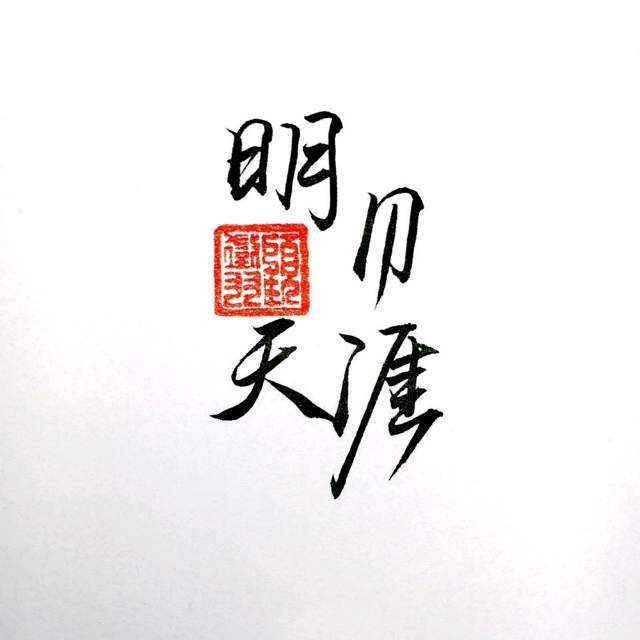 明月
天涯